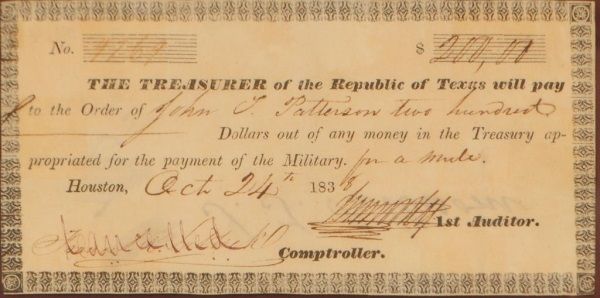 No. $ 200,00
THE TREASURER of the Republic of Texas will pay
to the Order of John T. Patterson two hundred
Dollars out of any money in the Treasury ap-
propriated for the payment of the Military. for a mule.
Houston, Oct 24th 1838
1st Auditor.
Comptroller.